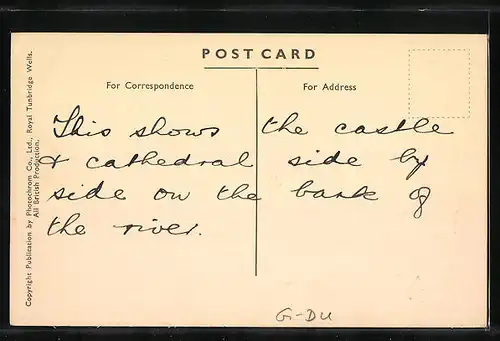 POST CARD
For Correspondence
For Address
This shows the castle
& cathedral side by
side on the bank of
the river.
Copyright Publication by Photochrom Co., Ltd., Royal Tunbridge Wells.
All British Production.
G-DU